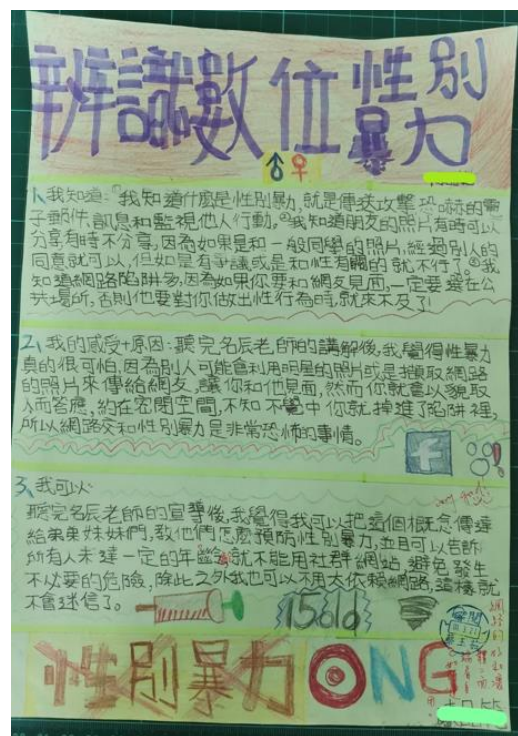 辨識數位性別
暴力
1、我知道:①我知道什麼是性別暴力,就是傳送攻擊恐嚇的電
子郵件、訊息和監視他人行動。②我知道朋友的照片有時可以
分享有時不分享,因為如果是和一般同學的照片,經過別人的
同意就可以,但如是有爭議或是和性有關的就不行了。③我
知道網路陷阱多,因為如果你要和網友見面,一定要選在公
共場所,否則他要對你做出性行為時,就來不及了!
2、我的感受+原因:聽完名辰老師的講解後,我覺得性暴力
真的很可怕,因為別人可能會利用明星的照片或是擷取網路
的照片來傳給網友,讓你和他見面,然而你就會以貌取
人而答應,約在密閉空間,不知不覺中你就掉進了陷阱裡,
所以網路交和性別暴力是非常恐怖的事情。
f
3、我可以:
聽完名辰老師的宣導後,我覺得我可以把這個概念傳達
給弟弟妹妹們,教他們怎麼預防性別暴力,並且可以告訴
所有人未達一定的年齡,就不能用社群網站,避免發生
不必要的危險,除此之外我也可以不用太依賴網路,這樣就
不會迷信了。
性別暴力 NG